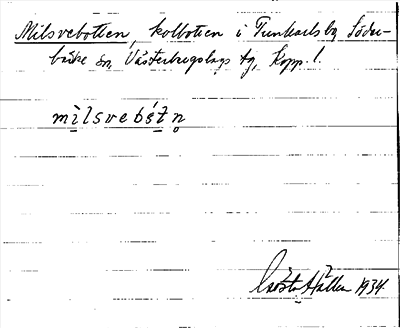 Milsvebotten, kolbotten i Tunkarlsby Söder-
bärke sn, Västerbergslags tg, Kopp. l.
mìlsvebót̠n̥
Gösta Hallm 1934.